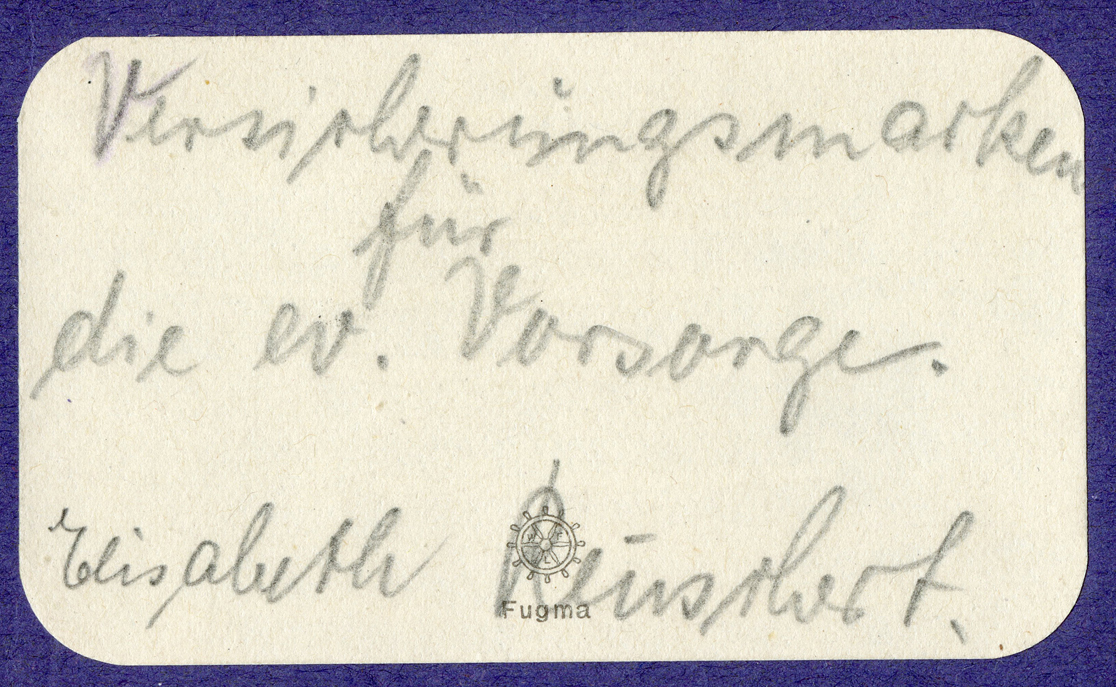 Versicherungsmarken
für
die ev. Vorsorge.
Elisabeth Reuschert.
Fugma